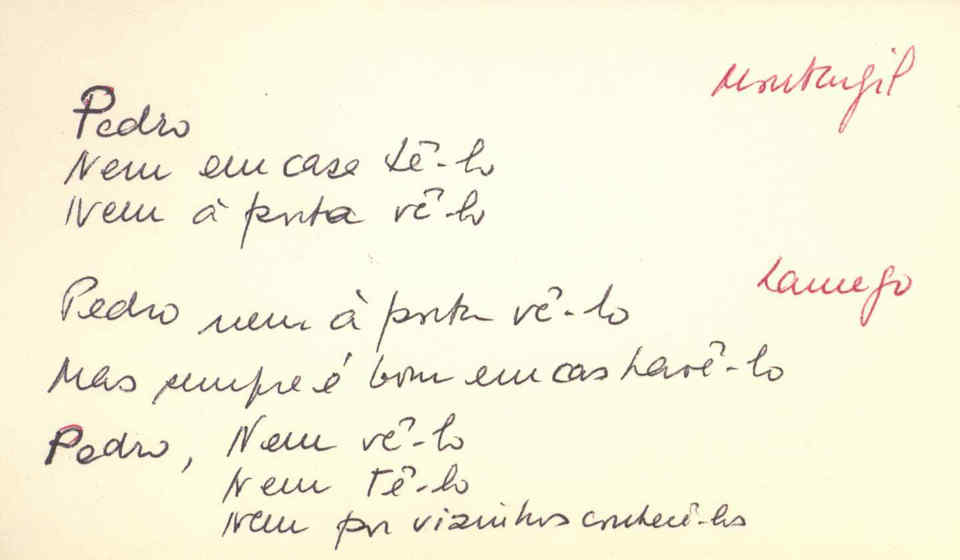 Montargil
Pedro
Nem em casa tê-lo
Nem à porta vê-lo
Lamego
Pedro nem à porta vê-lo
Mas sempre é bom em cas havê-lo
Pedro, Nem vê-lo
Nem Tê-lo
Nem por vizinhos conhecê-los